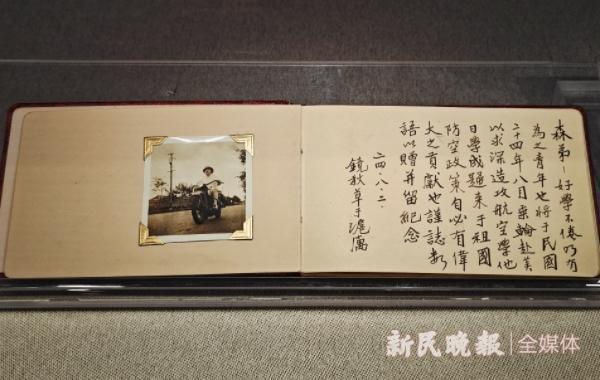 森弟—好學不倦乃有
為之青年也將于民國
二十四年八日乘輪赴美
以求深造攻航空學他
日學成歸來于祖國
防空政策自必有偉
大之貢獻也謹誌數
語以贈并留紀念
二四.八.二.
鏡秋草于滬寓
新民晚報|全媒体